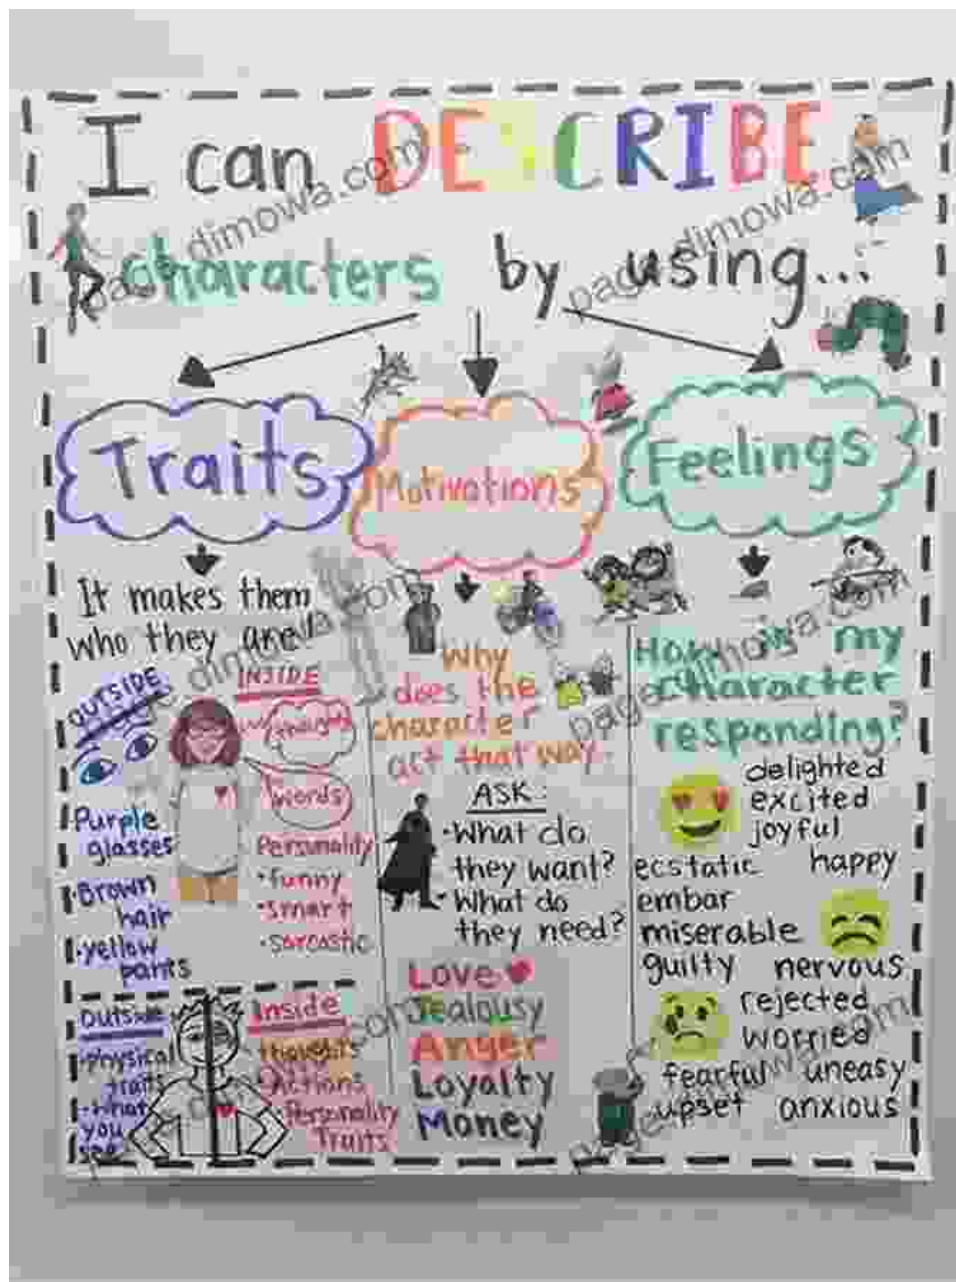 I can DESCRIBE
characters by using...
Traits
Motivations
Feelings
It makes them
who they are!
OUTSIDE
INSIDE
words
Purple
glasses
Brown
hair
yellow
pants
Personality
• funny
• smart
• sarcastic
Outside
• physical
traits
• what
you
see
Inside
thoughts
• Actions
• Personality
Traits
Why
does the
character
act that way.
ASK:
• What do
they want?
• What do
they need?
Love
Jealousy
Anger
Loyalty
Money
How is my
character
responding?
delighted
excited
joyful
ecstatic happy
embar
miserable
guilty nervous
rejected
worried
fearful uneasy
upset anxious